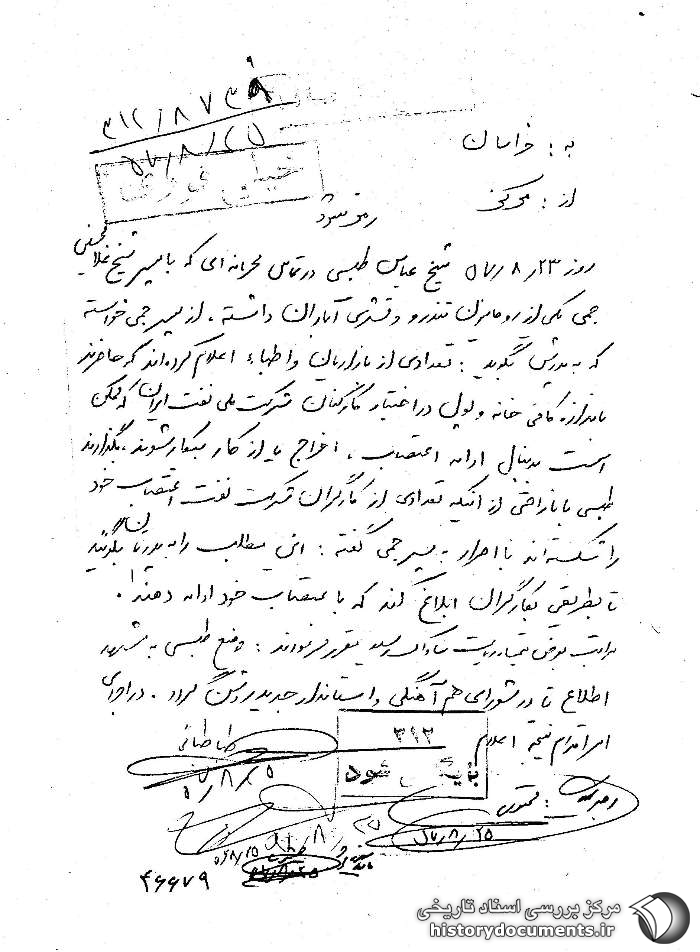 ۳۱۲/۸۷۳۹
۵۷/۸/۲۵
خیلی فوری
به: خراسان
از: مرکز
رمز شود
روز ۵۷/۸/۲۳ شیخ عباس طبسی در تماس محرمانه‌ای که با پسر شیخ غلامحسین
جمی یکی از روحانیون تندرو و قشری آبادان داشته، از پسر جمی خواسته
که به پدرش بگوید: تعدادی از بازاریان و اطباء اعلام کرده‌اند که حاضرند
باندازه کافی خانه و پول در اختیار کارکنان شرکت ملی نفت ایران که ممکن
است بدنبال ادامه اعتصاب، اخراج یا از کار بیکار شوند، بگذارند
طبسی با ناراحتی از اینکه تعدادی از کارگران شرکت نفت اعتصاب خود
را شکسته‌اند با اصرار به پسر جمی گفته: این مطلب را به پدرتان بگوئید
تا بطریقی بکارگران ابلاغ کند که با اعتصاب خود ادامه دهند.
مراتب بعرض تیمسار ریاست ساواک رسید مقرر فرمودند: وضع طبسی به مشهد
اطلاع تا در شورای هم‌آهنگی و استاندار جدید روشن گردد. در اجرای
امر اقدام نتیجه اعلام
طباطبائی
۵۷/۸/۲۵
۳۱۲
بایگانی شود
۵۷/۸/۲۵
۴۶۶۷۹
مرکز بررسی اسناد تاریخی
historydocuments.ir